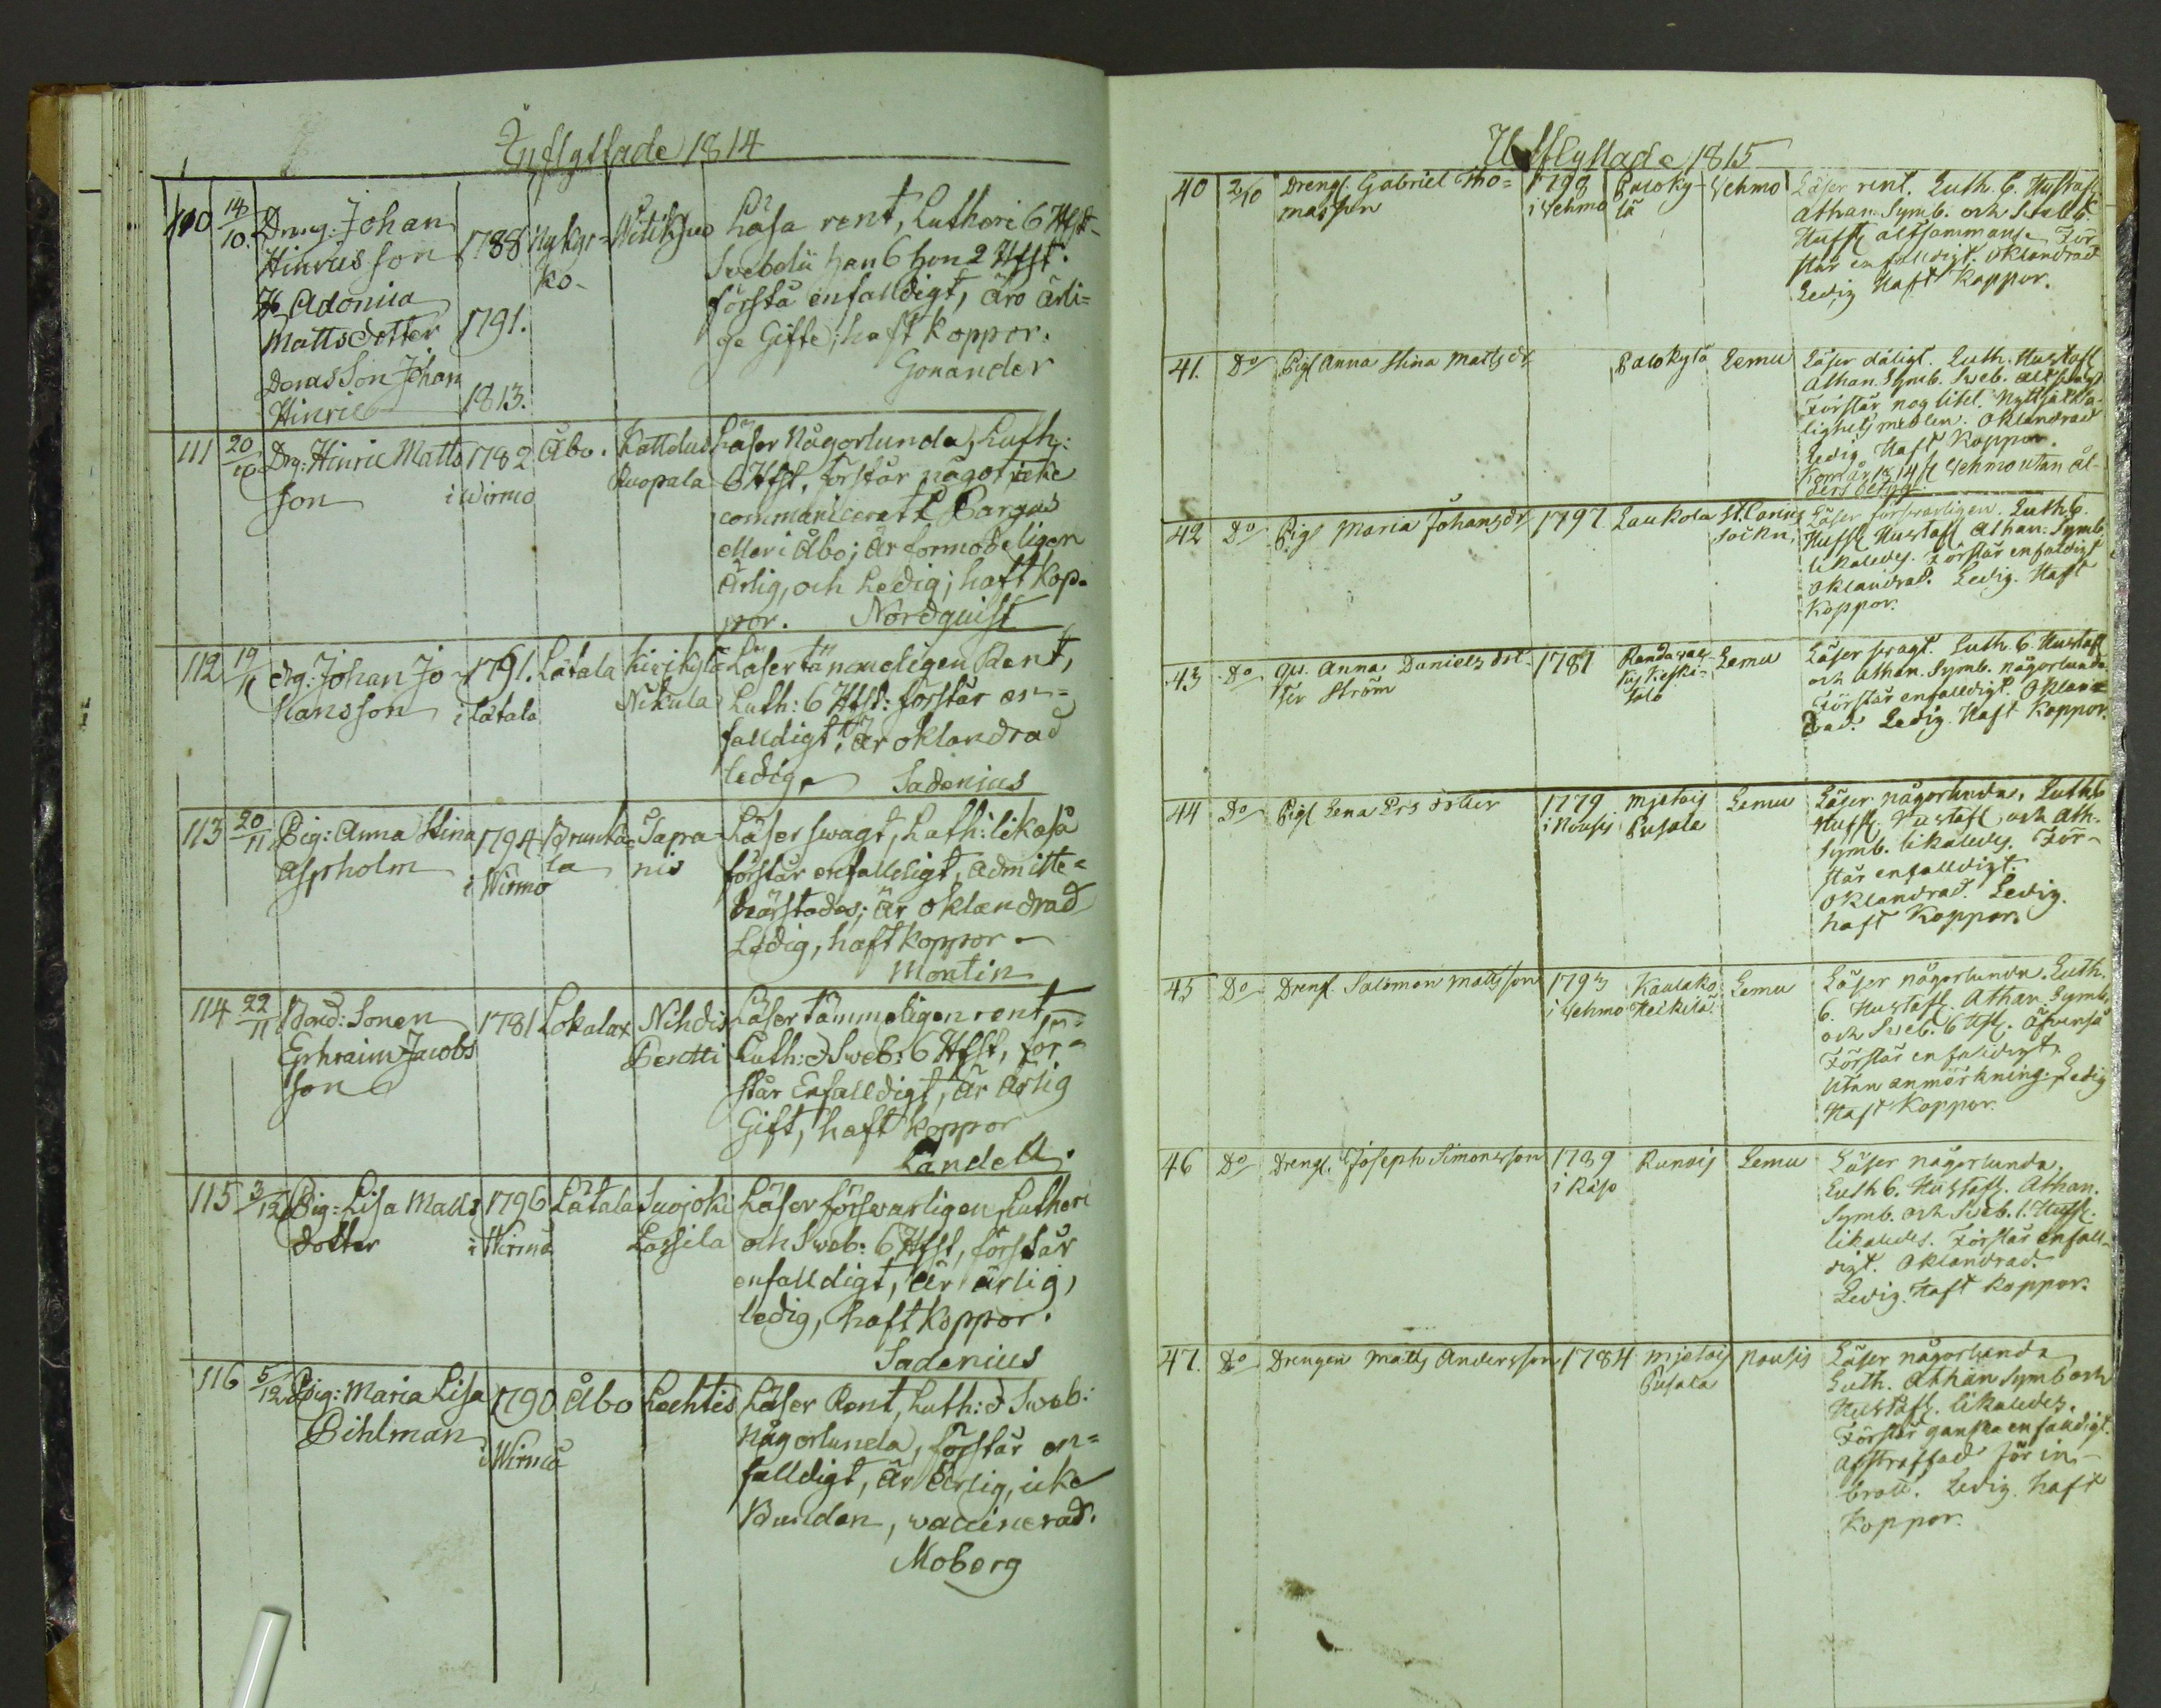 Inflyttade 1814
110 14/10. Dreng: Johan
Hinricsson 1788 Nykyr-
ko-
H. Adonica
Mattsdotter 1791.
Deras Son Johan
Hinric 1813.
Läsa rent, Lutheri 6 Hfst.
Svebelii han 6 hon 2 Hfst.
förstå enfalldigt, äro ärli=
ge Gifte; haft koppor.
Gonander
111 20/10 Drg: Hinric Matts
son 1782 i Wirmo Åbo.
Läser Någorlunda, Luth:
6 Hfst, förstår något icke
communicerat i Pargas
eller i Åbo; är formodeligen
ärlig, och Ledig; haft kop-
por. Nordquist
112 19/11 Drg: Johan Jo-
hansson 1791. i Lätala Lätala Kirikylä
Nikula
Läser tämmeligen Rent,
Luth: 6 Hfst: förstår en=
falldigt, är oklandrad
ledig. Sadenius
113 20/11 Pig: Anna Stina
Aspholm 1794 i Wirmo
Sapa-
nis
Läser swagt, Luth: likaså
förstår enfalldigt, admitte=
härstädes; är oklandrad
Ledig, haft koppor
Montin
114 22/11 Bond: Sonen
Ephraim Jacobs
son 1781 Lokalax Nihdis
Pentti
Läser tämmeligen rent
Luth: & Sweb: 6 Hfst, för=
står Enfalldigt, är Ärlig
Gift, haft koppor
Landell.
115 3/12 Pig: Lisa Matts
dotter 1796 i Wirmo Lätala Suojoki
Lassila
Läser förswarligen Lutheri
och Sweb: 6 Hfst, förstår
enfalldigt, är ärlig,
ledig, haft koppor.
Sadenius
116 5/12 Pig: Maria Lisa
Pihlman 1790 i Wirmo Åbo Lechtis
Läser Rent, Luth: & Sweb:
Någorlunda, förstår en=
falldigt, är ärlig, icke
Bunden, vaccinerad.
Moberg
Utflyttade 1815
40 2/10 Drengl. Gabriel Tho=
masson 1798 i Vehmo Palo Ky-
lä Vehmo
Läser rent. Luth. 6. Hustafl.
Athan. Symb. och Sveb. 6.
Hufst altsammans. För-
står enfalldigt. Oklandrad
Ledig Haft Koppor.
41. Do Pigl Anna Stina Mattsdr Palo Kylä Lemu
Läser dåligt. Luth. Hustafl
Athan. Symb. Sveb.
Förstår nog litet. Nyttja Sa-
lighets medlen. Oklandrad
Ledig Haft Koppor.
Kom år 1814 fr Vehmo utan ål-
ders betyg.
42 Do Pigl Maria Johansdr 1797 Laukola St. Carins
Sockn,
Läser försvarligen. Luth. 6.
Hufst Hustafl Athan: Symb.
likaledes. Förstår enfaldigt
Oklandrad. Ledig. Haft
Koppor.
43 Do Qv. Anna Daniels dot-
ter Ström 1781 Lemu
Läser svagt. Luth. 6. Hustafl
och Athan. Symb. någorlunda
Förstår enfalldigt. Oklan-
drad. Ledig. Haft Koppor.
44 Do Pigl Lena Ers dotter 1779
i Nousis Mjetois
Pusala Lemu
Läser någorlunda, Luth 6
Hufst. Hustafl och Ath-
Symb. likaledes. För-
står enfalldigt.
Oklandrad. Ledig.
haft Koppor.
45 Do Drengl. Salomon Mattsson 1793
i Vehmo Kaulako
Heikilä Lemu
Läser någorlunda. Luth.
6. Hustafl. Athan. Symb.
och Sveb. 6 Hfst. äfvenså
Förstår enfaldigt,
Utan anmärkning. Ledig
Haft Koppor.
46 Do Drengl. Joseph Simonsson 1789
Runois Lemu
Läser någorlunda,
Luth 6. Hustafl. Athan.
Symb. och Sveb. 1. Hufst.
likaledes. Förstår enfall-
digt. Oklandrad.
Ledig. Haft koppor.
47. Do Drengen Matts Andersson 1784 Mjetois
Pusala Nousis
Läser någorlunda
Luth. Athan Symb och
Hustafl. likaledes.
Förstår ganska enfalldigt.
Afstraffad för in-
brott. Ledig. haft
Koppor.